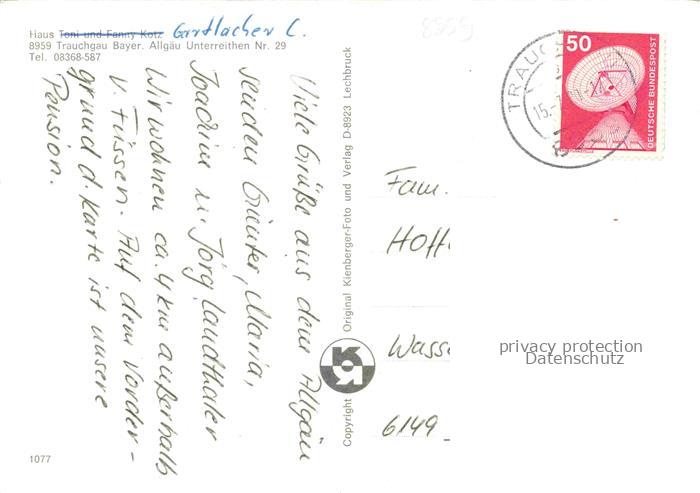 Haus Toni und Fanny Kotz Gartlacher C.
8959 Trauchgau Bayer. Allgäu Unterreithen Nr. 29
Tel. 08368-587
Viele Grüße aus dem Allgäu
senden Günter, Maria,
Joachim u. Jörg Landthaler
Wir wohnen ca. 4 km außerhalb
v. Füssen. Auf dem Vorder-
grund d. Karte ist unsere
Pension.
1077
Copyright Original Kienberger-Foto und Verlag D-8923 Lechbruck
8959
TRAUC
15.
50
DEUTSCHE BUNDESPOST
Fam.
Hoff
Wasse
6149
privacy protection
Datenschutz